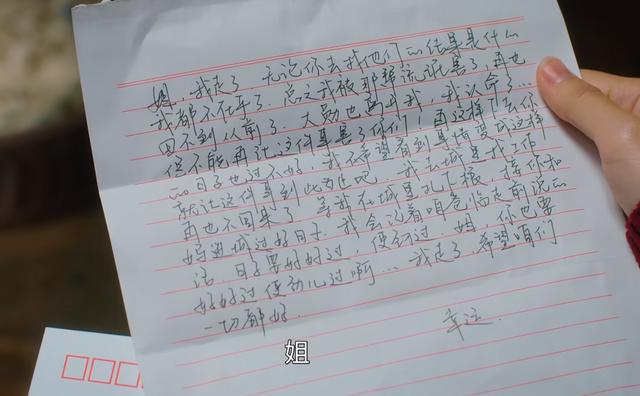 姐，我走了，无论你去找他们的结果是什么
我都不在乎了，总之我被那群流氓害了，再也
回不到从前了，大勋也离开我，我认命了…
但不能再让这件事害了你们！再这样下去你
的日子也过不好，我不希望看到事情变成这样
就让这件事到此为止吧，我去城里找工作
再也不回来了，等我在城里扎了根，接你和
妈进城过好日子，我会记着咱爸临走前说的
话，日子要好好过，使劲过，姐，你也要
好好过使劲儿过啊…我走了，希望咱们
一切都好.
幸运.
姐